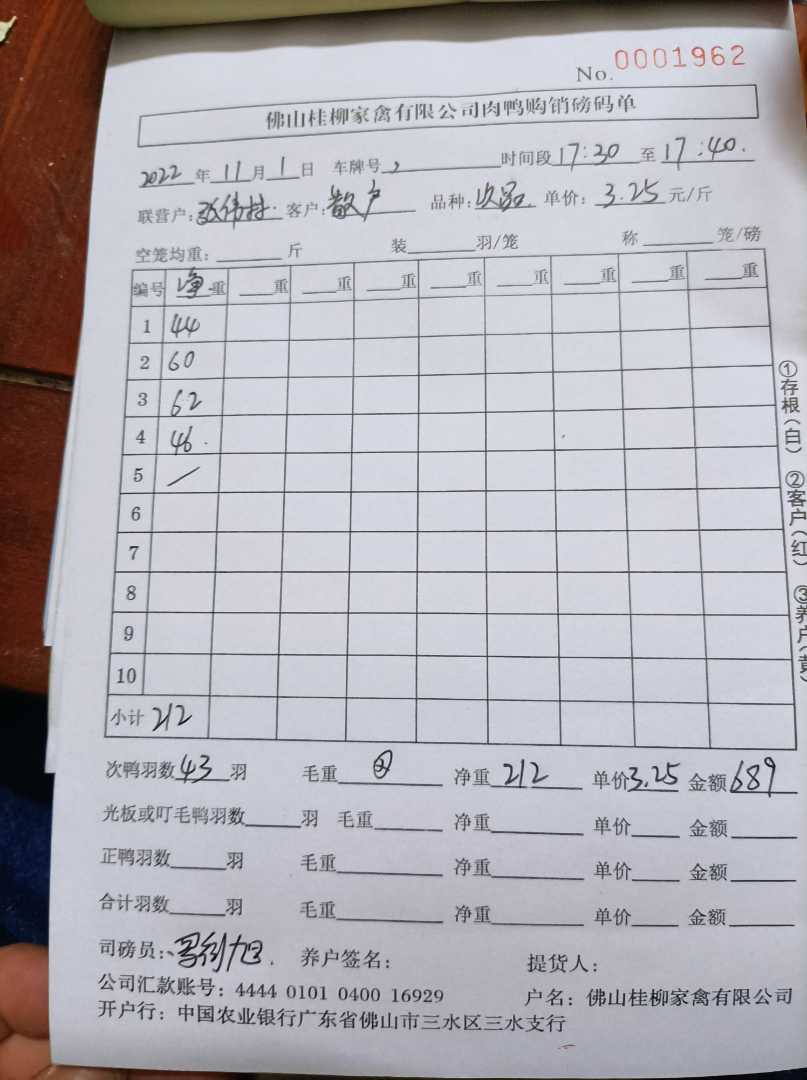 No. 0001962
佛山桂柳家禽有限公司肉鸭购销磅码单
2022 年 11 月 1 日 车牌号 2 时间段 17:30 至 17:40.
联营户: 客户: 散户 品种: 次品 单价: 3.25 元/斤
空笼均重: 斤 装 羽/笼 称 笼/磅
编号 净重 重 重 重 重 重 重 重 重
1 44
2 60
3 62
4 46.
5 /
6
7
8
9
10
小计 212
次鸭羽数 43 羽 毛重 净重 212 单价 3.25 金额 689
光板或叮毛鸭羽数 羽 毛重 净重 单价 金额
正鸭羽数 羽 毛重 净重 单价 金额
合计羽数 羽 毛重 净重 单价 金额
司磅员: 养户签名: 提货人:
公司汇款账号: 4444 0101 0400 16929 户名: 佛山桂柳家禽有限公司
开户行: 中国农业银行广东省佛山市三水区三水支行
①存根(白) ②客户(红) ③养户(黄)